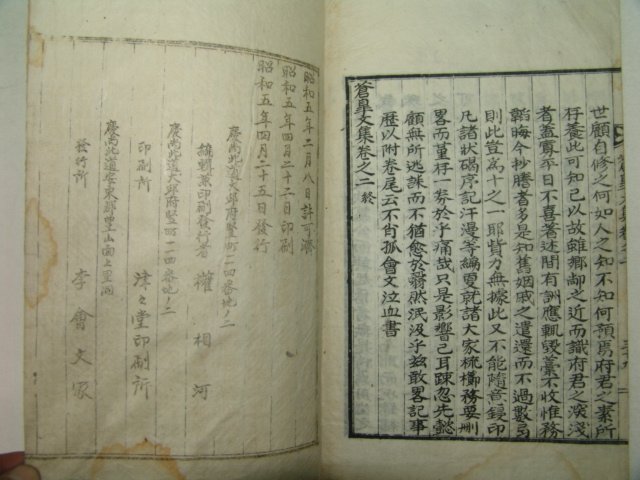 世顧自修之何如人之知不知何預焉府君之素所
存養此可知已以故雖鄕鄰之近而識府君之深淺
者盖寡平日不喜著述間有訓應輒毁藁不收惟務
韜晦今抄謄者多是知舊姻戚之遺還而不過數
則此豈爲十之一耶貲力無據此又不能隨意鋟印
凡諸狀碣序記汗漫等編更就諸大家梳櫛務要刪
畧而菫存一券於乎痛哉只是影響已耳疎忽先懿
顧無所逃誅而不猶愈於翳然泯汲乎玆敢畧記事
歷以附卷尾云不肖孤會文泣血書
蒼皐文集卷之二 終
昭和五年二月八日許可濟
昭和五年四月二十二日印刷
昭和五年四月二十五日發行
慶尙北道大邱府竪町二一四番地ノ二
雄輯兼印刷發行者 權相河
慶尙北道大邱府竪町二一四番地ノ二
印刷所 津々堂印刷所
慶尙北道 東郡 山面上里洞
發行所 李會文家